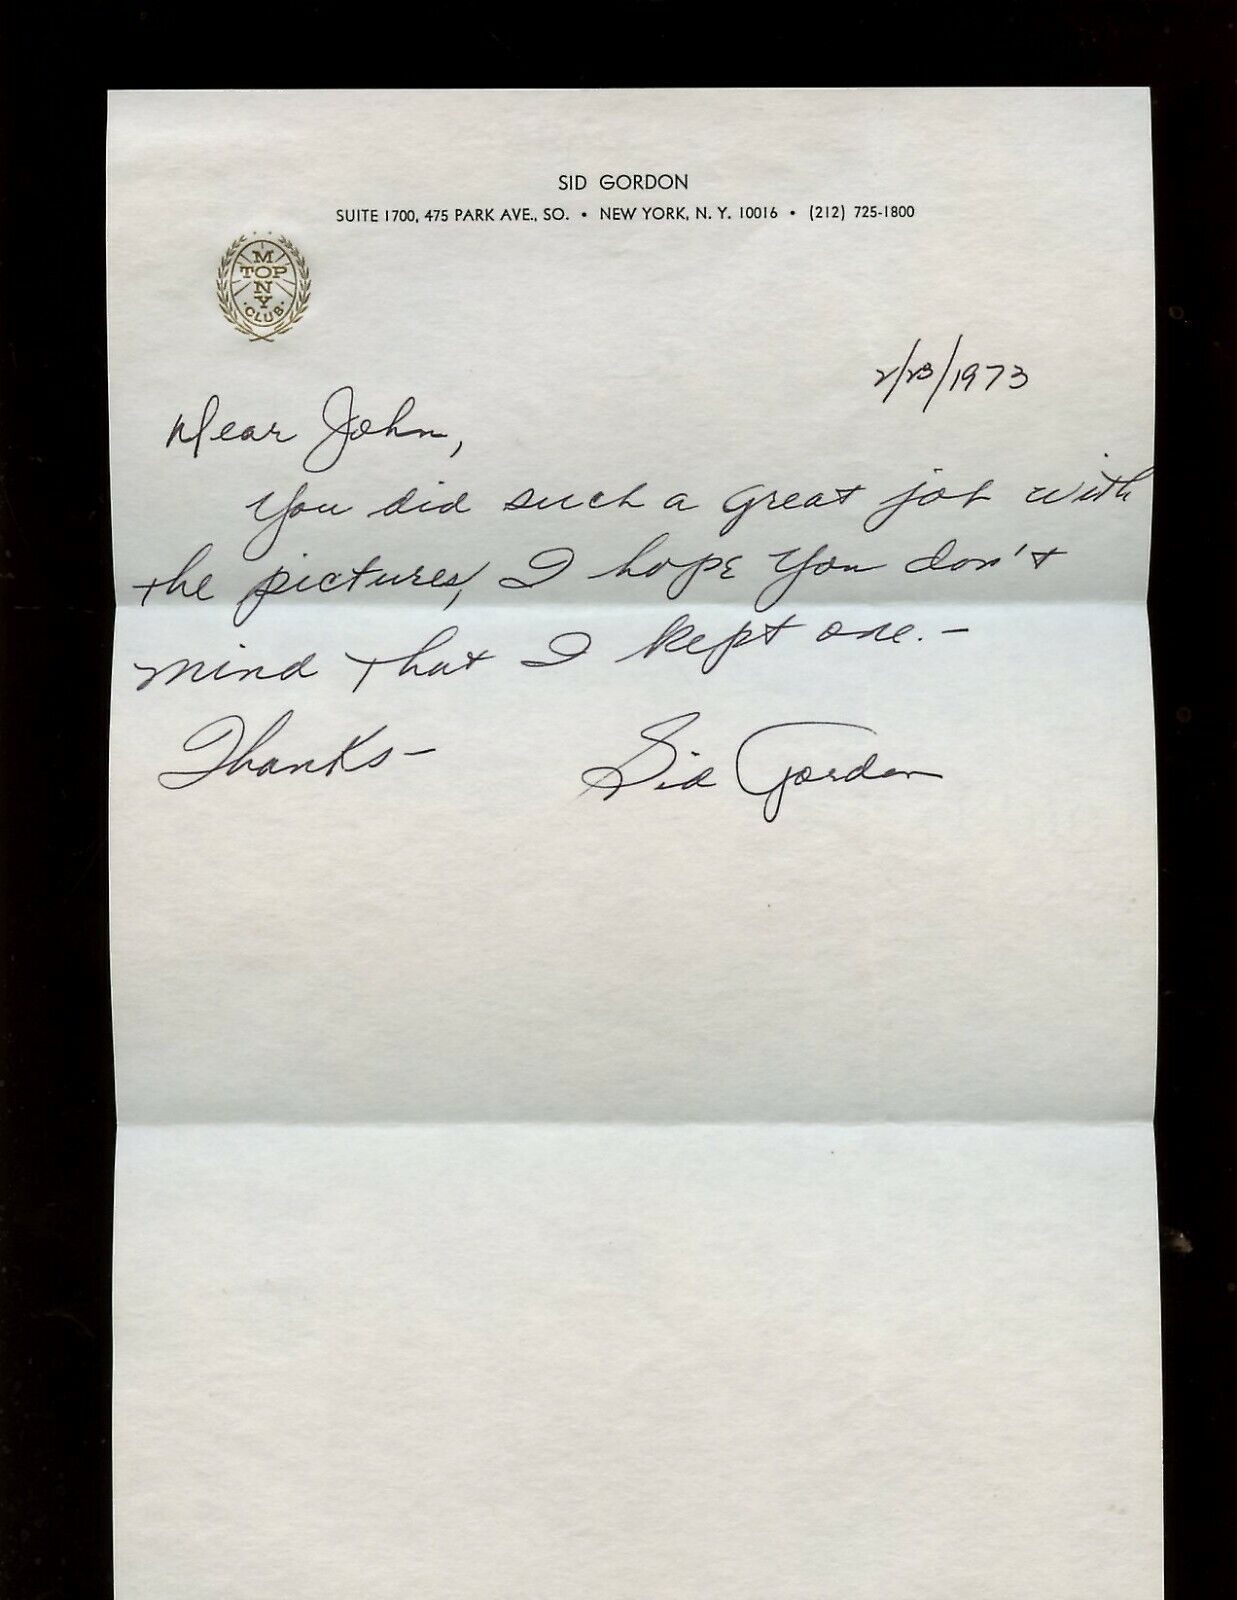 SID GORDON
SUITE 1700, 475 PARK AVE., SO. • NEW YORK, N. Y. 10016 • (212) 725-1800
M
TOP
N
Y
CLUB
2/23/1973
Dear John,
You did such a great job with
the pictures, I hope you don't
mind that I kept one.-
Thanks-
Sid Gordon